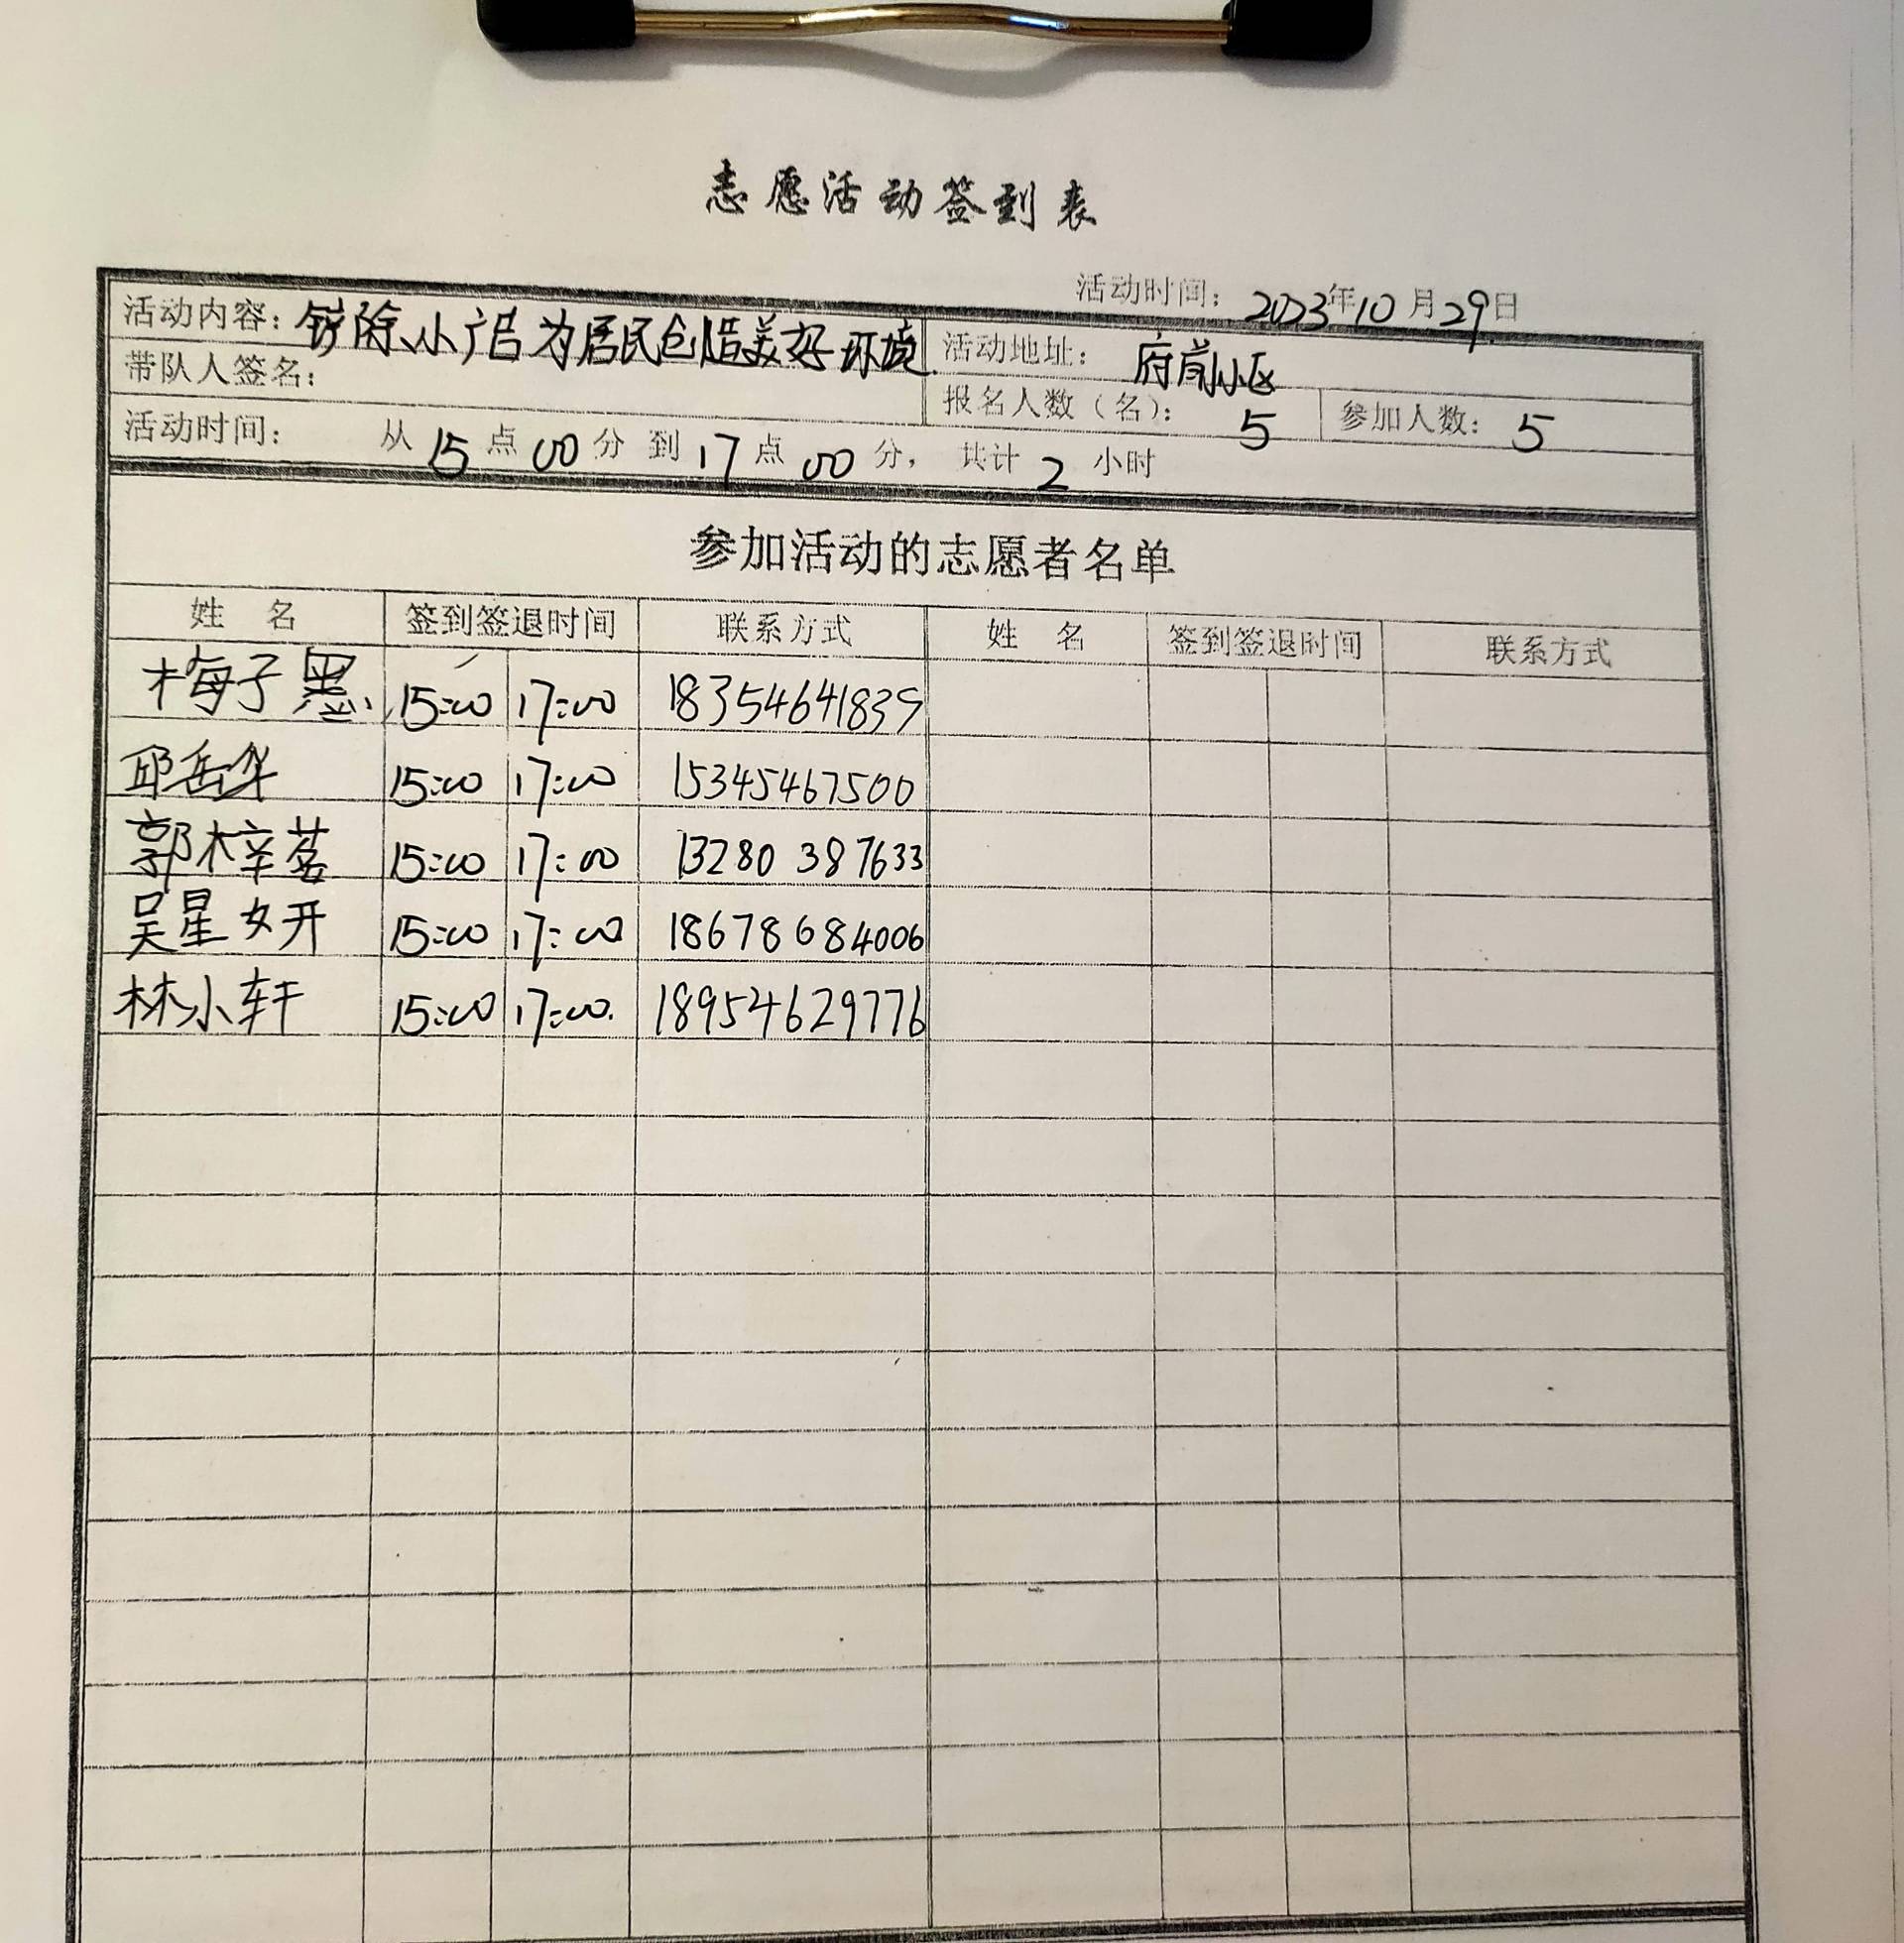 志愿活动签到表
活动时间：2023年10月29日
活动内容：铲除小广告为居民创造美好环境.
活动地址：府前小区
带队人签名：
报名人数（名）：5 参加人数：5
活动时间： 从15点00分到17点00分，共计2小时
参加活动的志愿者名单
姓 名 签到签退时间 联系方式 姓 名 签到签退时间 联系方式
梅子墨 15:00 17:00 18354641839
邱岳华 15:00 17:00 15345467500
郭梓茗 15:00 17:00 13280387633
吴星妍 15:00 17:00 18678684006
林小轩 15:00 17:00. 18954629776